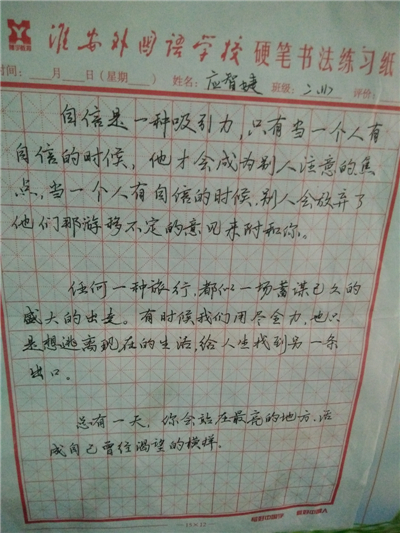 淮安外国语学校 硬笔书法练习纸
时间：___月___日（星期 ） 姓名：应智婕 班级： 评价：
自信是一种吸引力，只有当一个人有
自信的时候，他才会成为别人注意的焦
点，当一个人有自信的时候，别人会放弃了
他们那游移不定的意见来附和你。
任何一种旅行，都似一场蓄谋已久的
盛大的出走。有时候我们用尽全力，也只
是想逃离现在的生活，给人生找到另一条
出口。
总有一天，你会站在最亮的地方，活
成自己曾经渴望的模样。